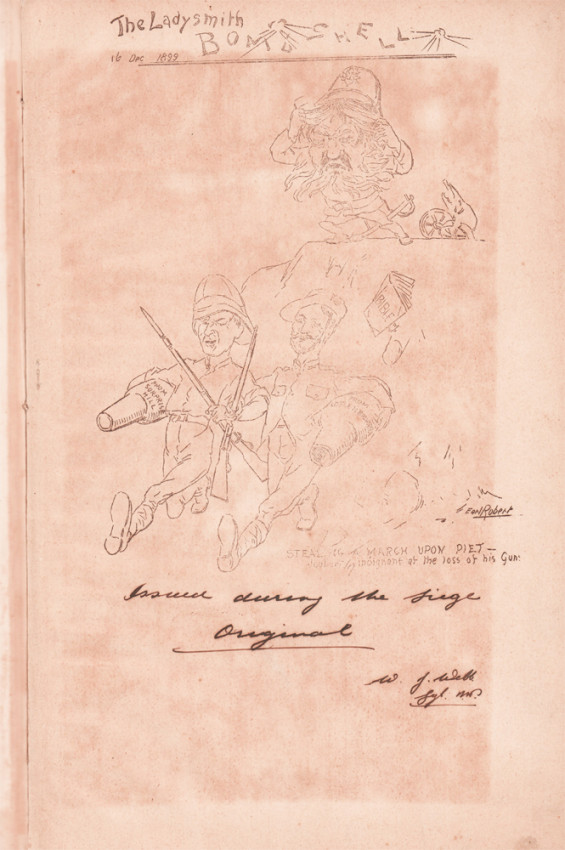 The Ladysmith
BOMBSHELL
16 Dec 1899
BIBLE
FROM
SURPRISE
HILL
Earl Robert
STEALING A MARCH UPON PIET —
indignant at the loss of his Gun.
Issued during the siege
Original
W. J. Webb
Sgt.